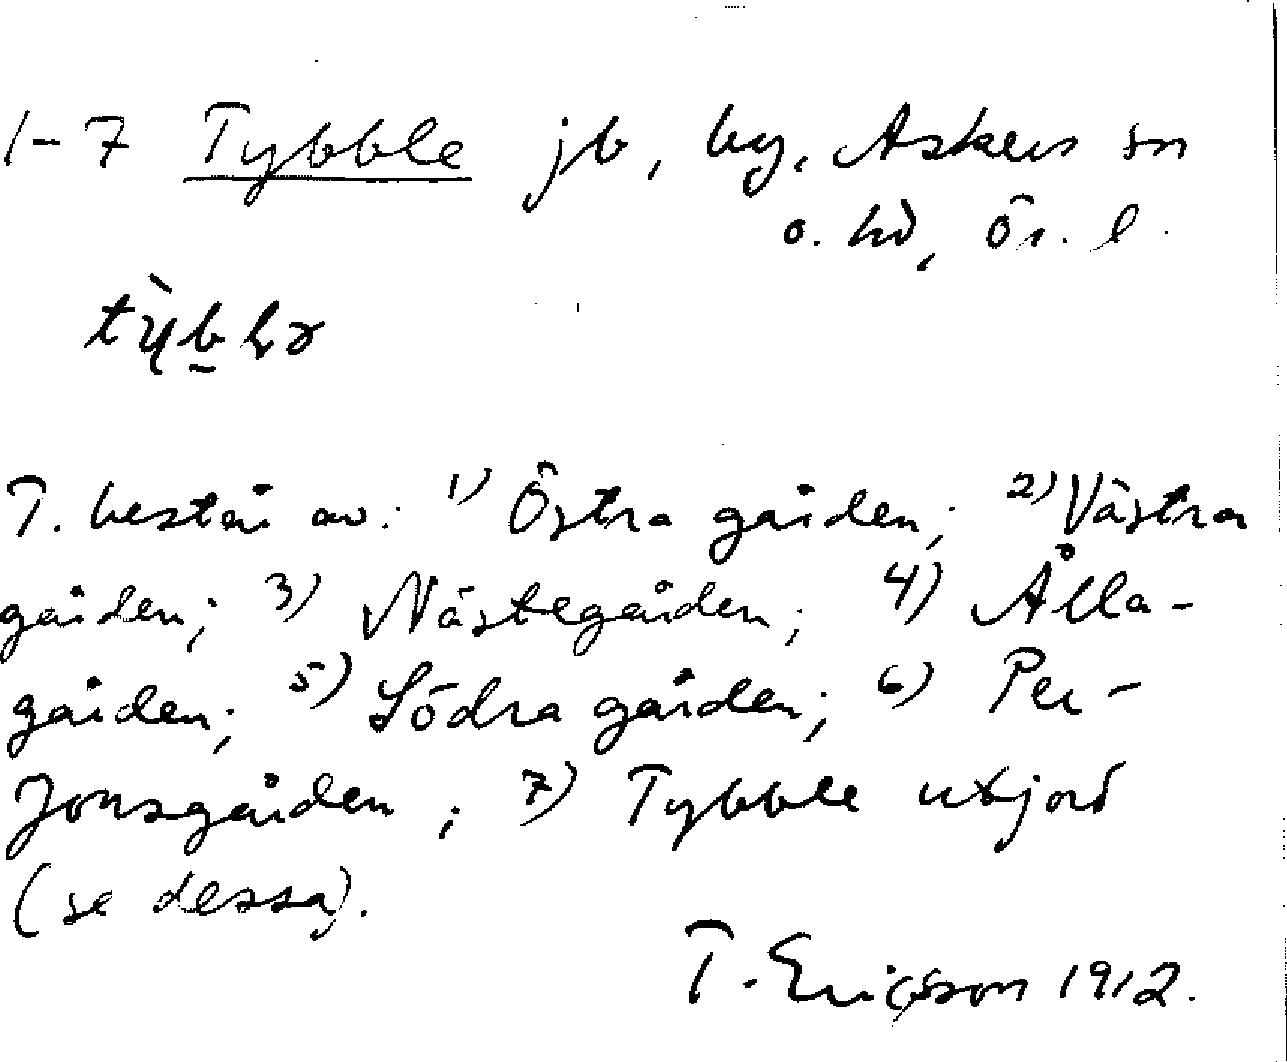 1-7 Tybble jb, by, Askers sn
o. hd, Ör. l.
T. består av: 1) Östra gården; 2) Västra
gården; 3) Nästegården; 4) Ålla-
gården; 5) Södra gården; 6) Per-
Jonsgården; 7) Tybble utjord
(se dessa).
T. Ericsson 1912.